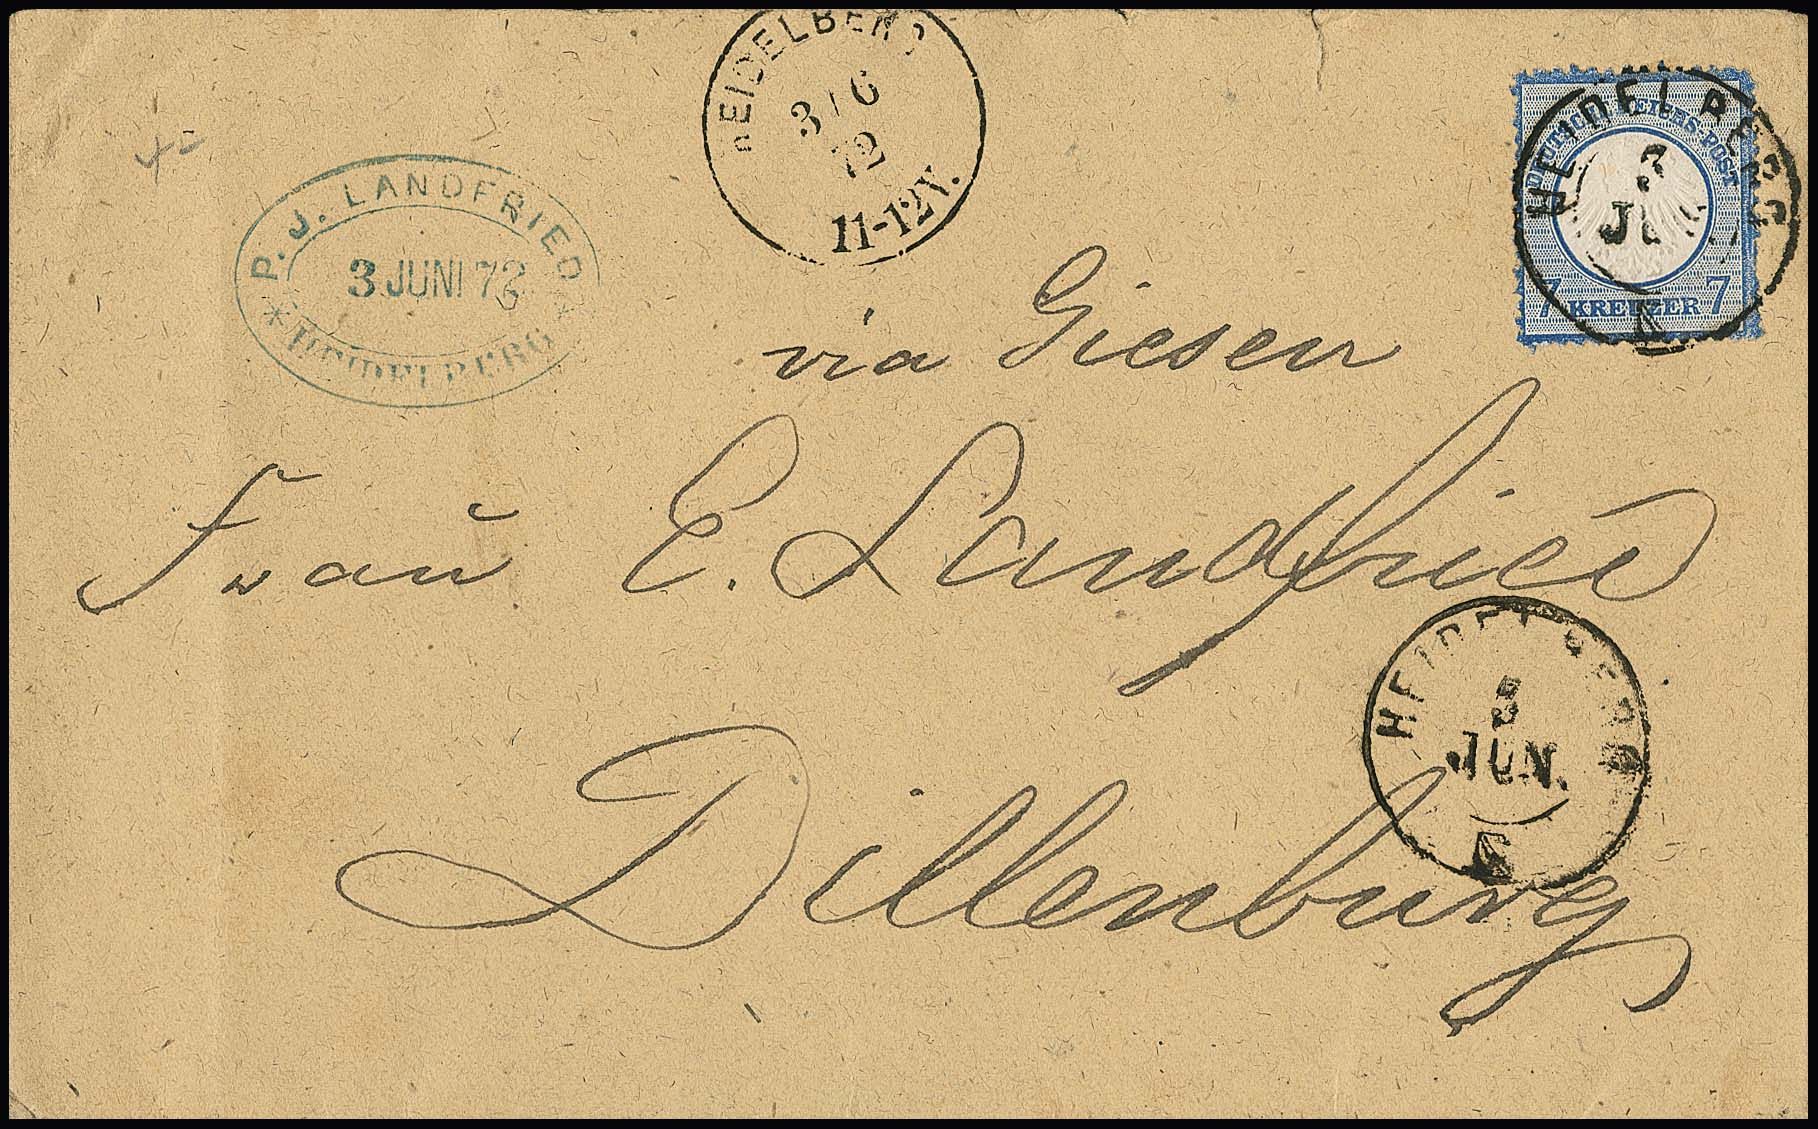 HEIDELBERG
3/6
72
11-12N.
P. J. LANDFRIED
3 JUNI 72
* HEIDELBERG *
DEUTSCHE REICHS-POST
7 KREUZER 7
HEIDELBERG
3
JUN.
via Giesen
Frau E. Landfried
HEIDELBERG
3
JUN.
Dillenburg